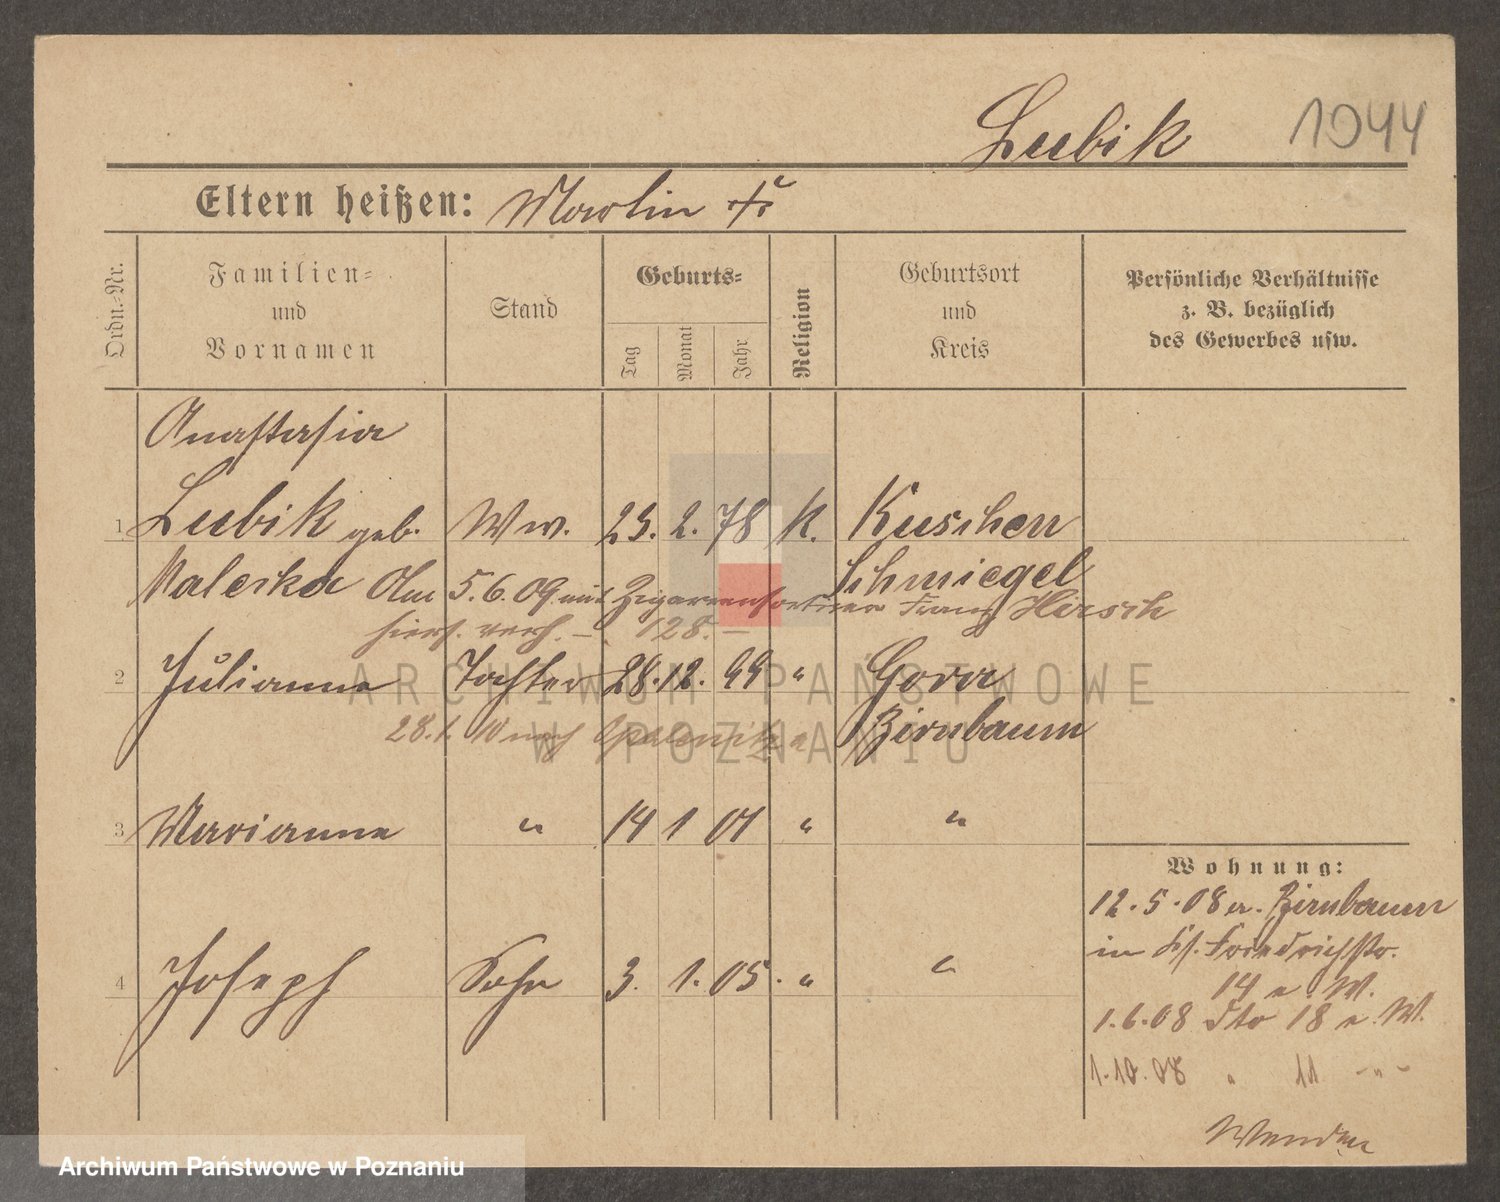 Lubik 1044
Eltern heißen: Martin
Ordn.-Nr.
Familien-
und
Vornamen
Stand
Geburts-
Tag
Monat
Jahr
Religion
Geburtsort
und
Kreis
Persönliche Verhältnisse
z. B. bezüglich
des Gewerbes usw.
Anastasia
1 Lubik geb. Ww. 23. 2. 78 K. Kuschen
Maleska Am 5.6.09 mit Zigarrensortierer Franz Hirsch
Schmiegel
hiers. verh. – 128. –
2 Julianne Tochter 28. 12. 99 " Gora
28.1.10 nach Opalenitza Birnbaum
3 Marianne " 14 1 01 " "
Wohnung:
12.5.08 v. Birnbaum
in Friedrichstr.
14 a. W.
4 Joseph Sohn 3. 1. 05. " "
1.6.08 dto 18 a. W.
1.10.08 " 11 - " -
ARCHIWUM PAŃSTWOWE
W POZNANIU
Archiwum Państwowe w Poznaniu